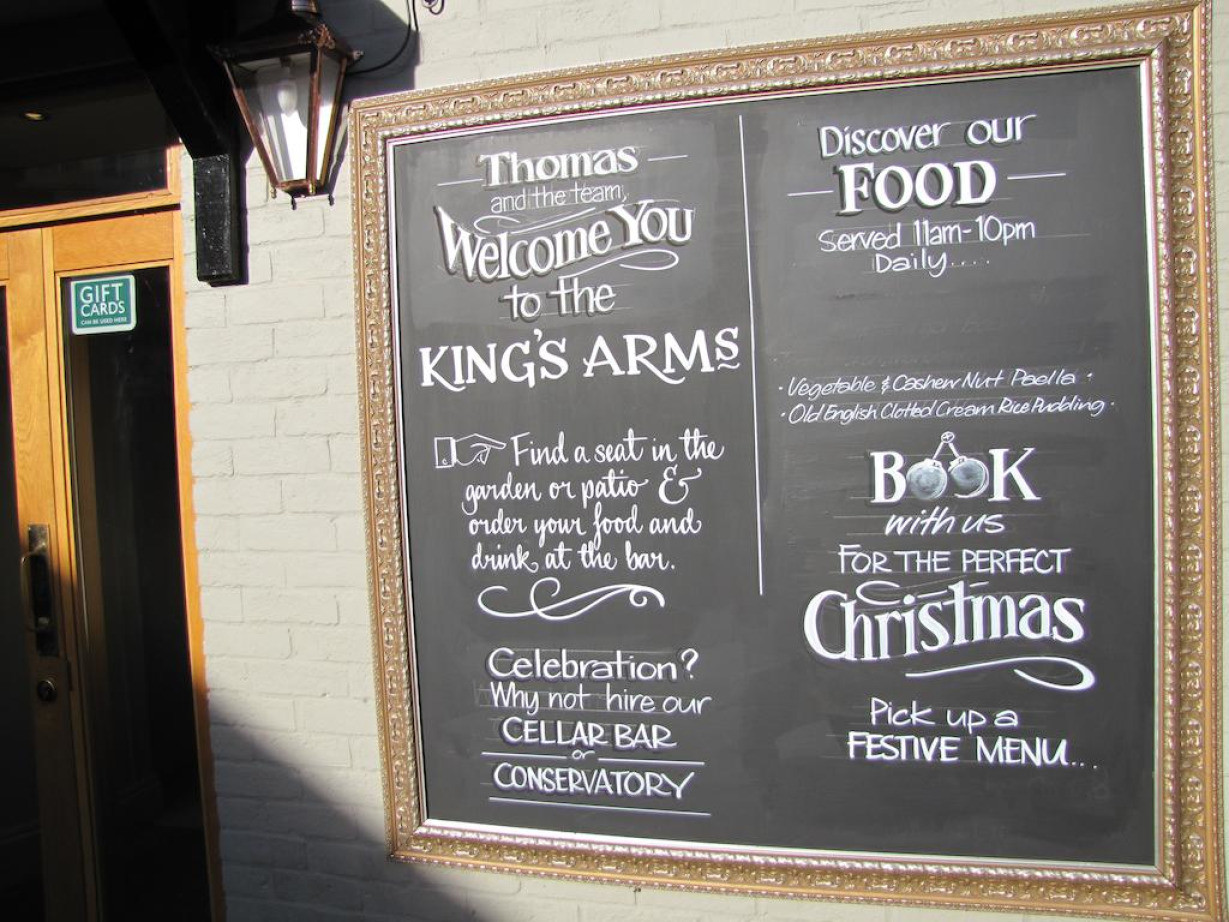 GIFT
CARDS
CAN BE USED HERE
Thomas
and the team,
Welcome You
to the
KING'S ARMS
Find a seat in the
garden or patio &
order your food and
drink at the bar.
Celebration?
Why not hire our
CELLAR BAR
or
CONSERVATORY
Discover our
FOOD
Served 11am-10pm
Daily....
· Vegetable & Cashew Nut Paella ·
· Old English Clotted Cream Rice Pudding ·
BOOK
with us
FOR THE PERFECT
Christmas
Pick up a
FESTIVE MENU...